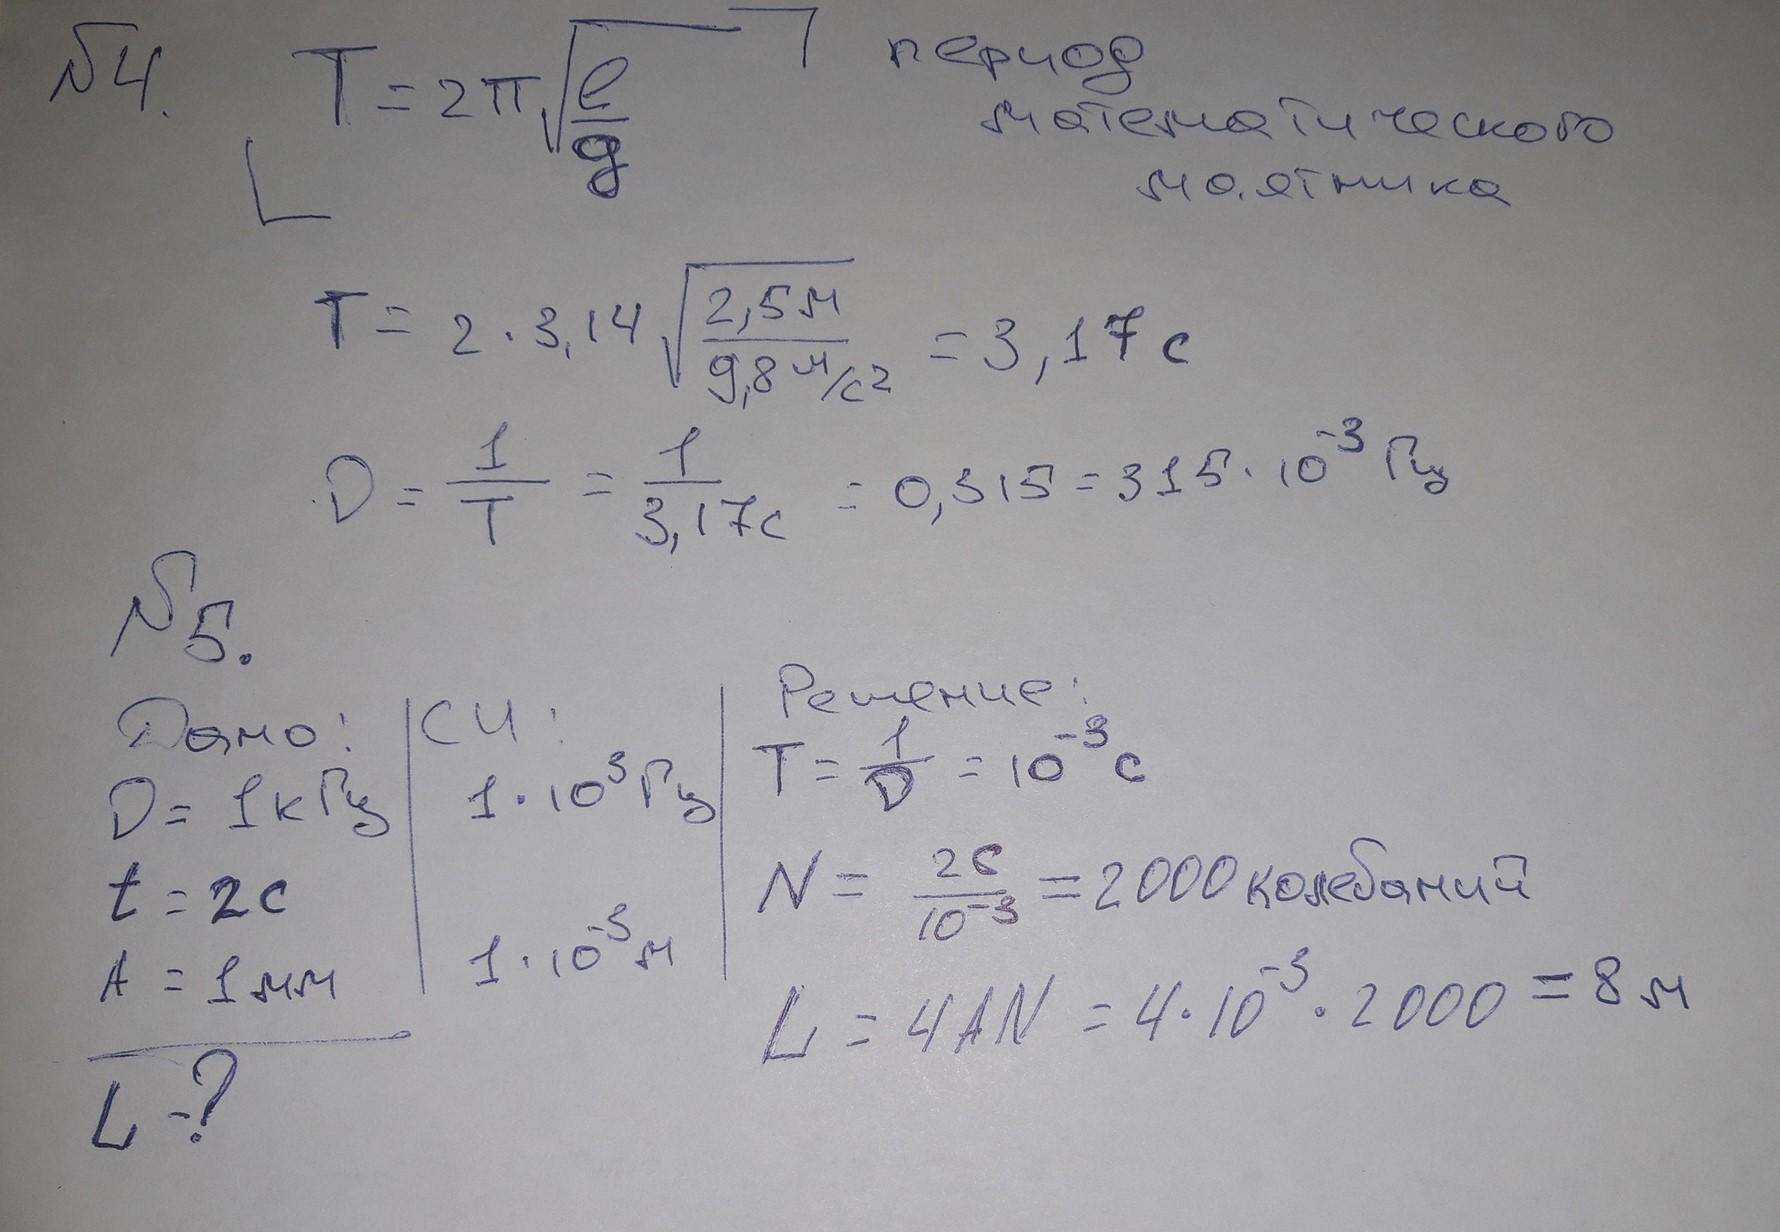 №4. T = 2π√(l/g) период
математического
маятника
T = 2 · 3,14 √(2,5м / 9,8 м/с2) = 3,17 с
D = 1/T = 1/3,17с = 0,315 = 315 · 10⁻³ Гц
№5.
Дано: СИ: Решение:
D = 1кГц 1 · 10³ Гц T = 1/D = 10⁻³ с
t = 2с N = 2с/10⁻³ = 2000 колебаний
A = 1мм 1 · 10⁻³ м L = 4AN = 4 · 10⁻³ · 2000 = 8 м
L - ?